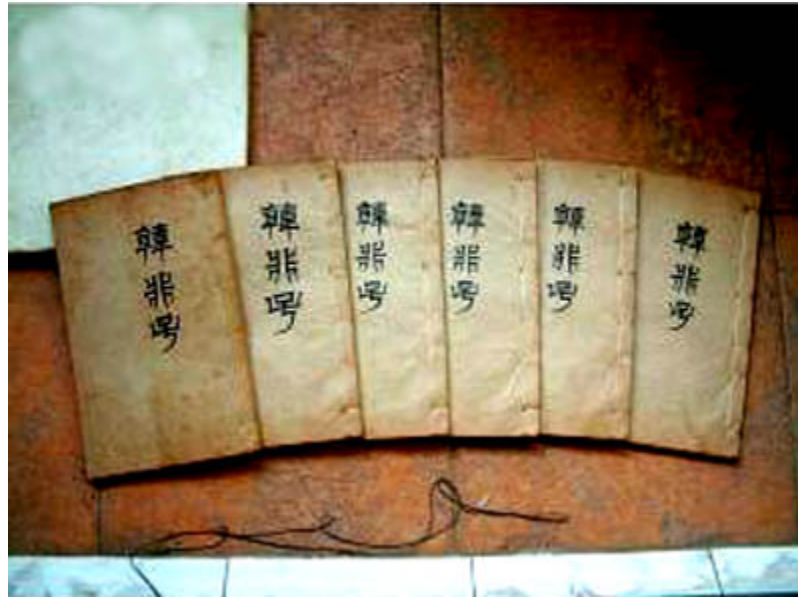 韓非子
韓非子
韓非子
韓非子
韓非子
韓非子